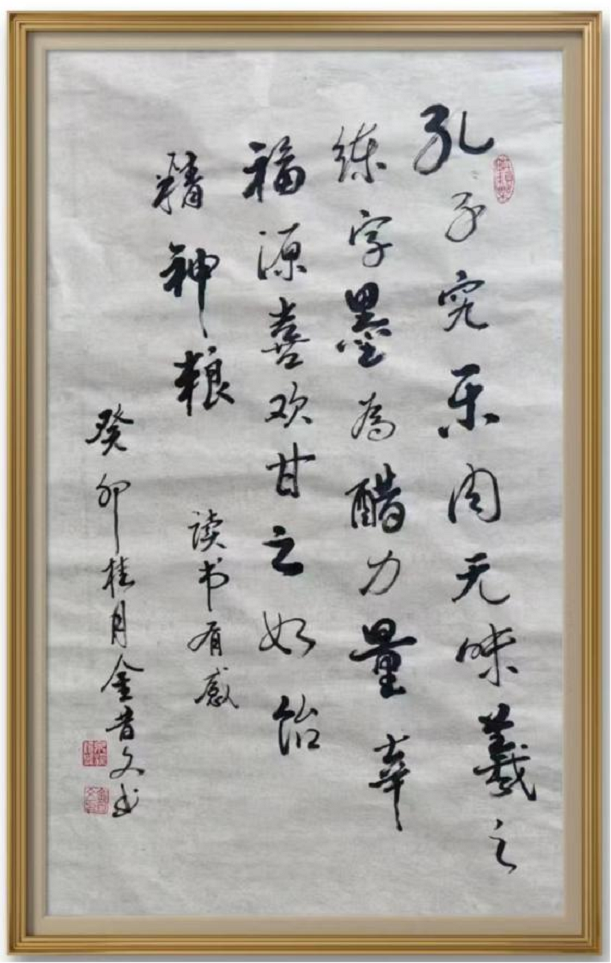 孔子究乐肉无味羲之
练字墨为醋力量幸
福源喜欢甘之如饴
精神粮
读书有感
癸卯桂月金昔文书